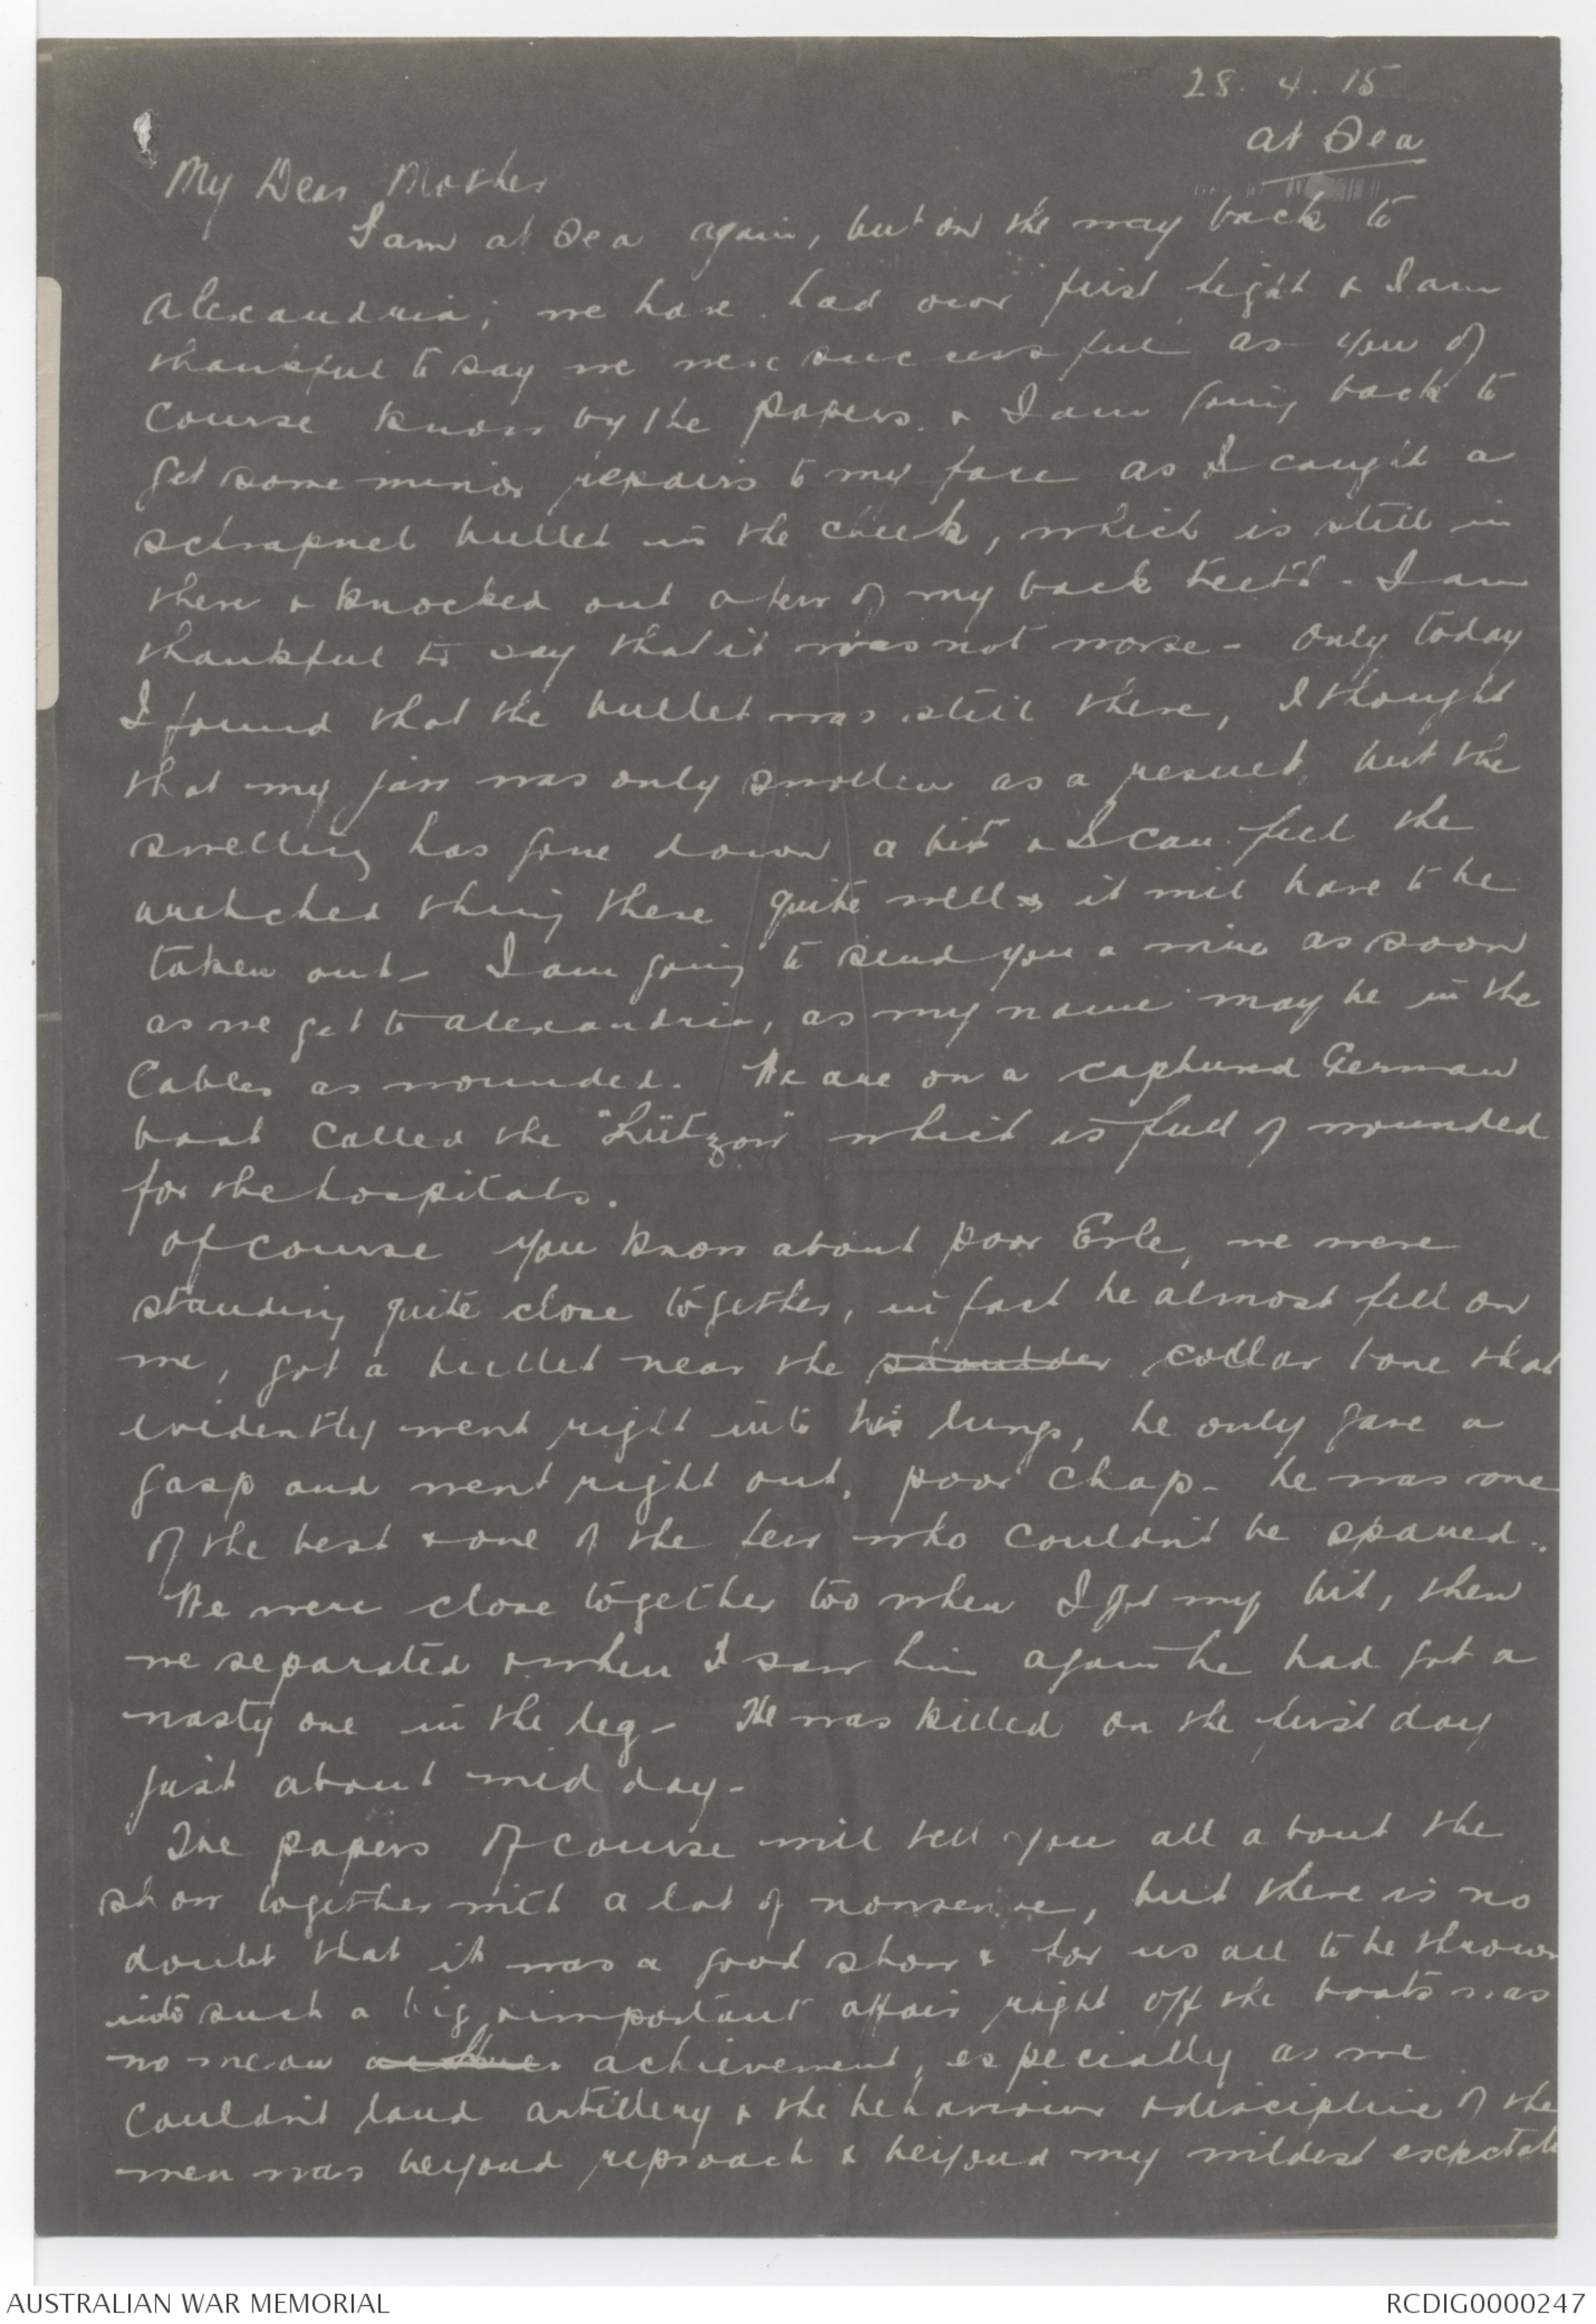 28. 4. 15
at Sea
My Dear Mother
I am at Sea again, but on the way back to
Alexandria; we have had our first fight & I am
thankful to say we were successful as you of
course know by the papers. & I am going back to
get some minor repairs to my face as I caught a
schrapnel bullet in the cheek, which is still in
there & knocked out a few of my back teeth - I am
thankful to say that it was not worse - only today
I found that the bullet was still there, I thought
that my jaw was only swollen as a result, but the
swelling has gone down a bit & I can feel the
wretched thing there quite well & it will have to be
taken out - I am going to send you a wire as soon
as we get to Alexandria, as my name may be in the
Cables as wounded. We are on a captured German
boat called the "Lützow" which is full of wounded
for the hospitals.
Of course you know about poor Erle, we were
standing quite close together, in fact he almost fell on
me, got a bullet near the shoulder collar bone that
evidently went right into his lungs, he only gave a
gasp and went right out, poor chap - he was one
of the best & one of the few who couldn't be spared..
We were close together too when I got my hit, then
we separated & when I saw him again he had got a
nasty one in the leg - He was killed on the first day
just about mid day -
The papers of course will tell you all about the
show together with a lot of nonsense, but there is no
doubt that it was a good show & for us all to be thrown
into such a big & important affair right off the boats was
no mean achievement, especially as we
couldn't land artillery & the behaviour & discipline of the
men was beyond reproach & beyond my wildest expectati
AUSTRALIAN WAR MEMORIAL
RCDIG0000247